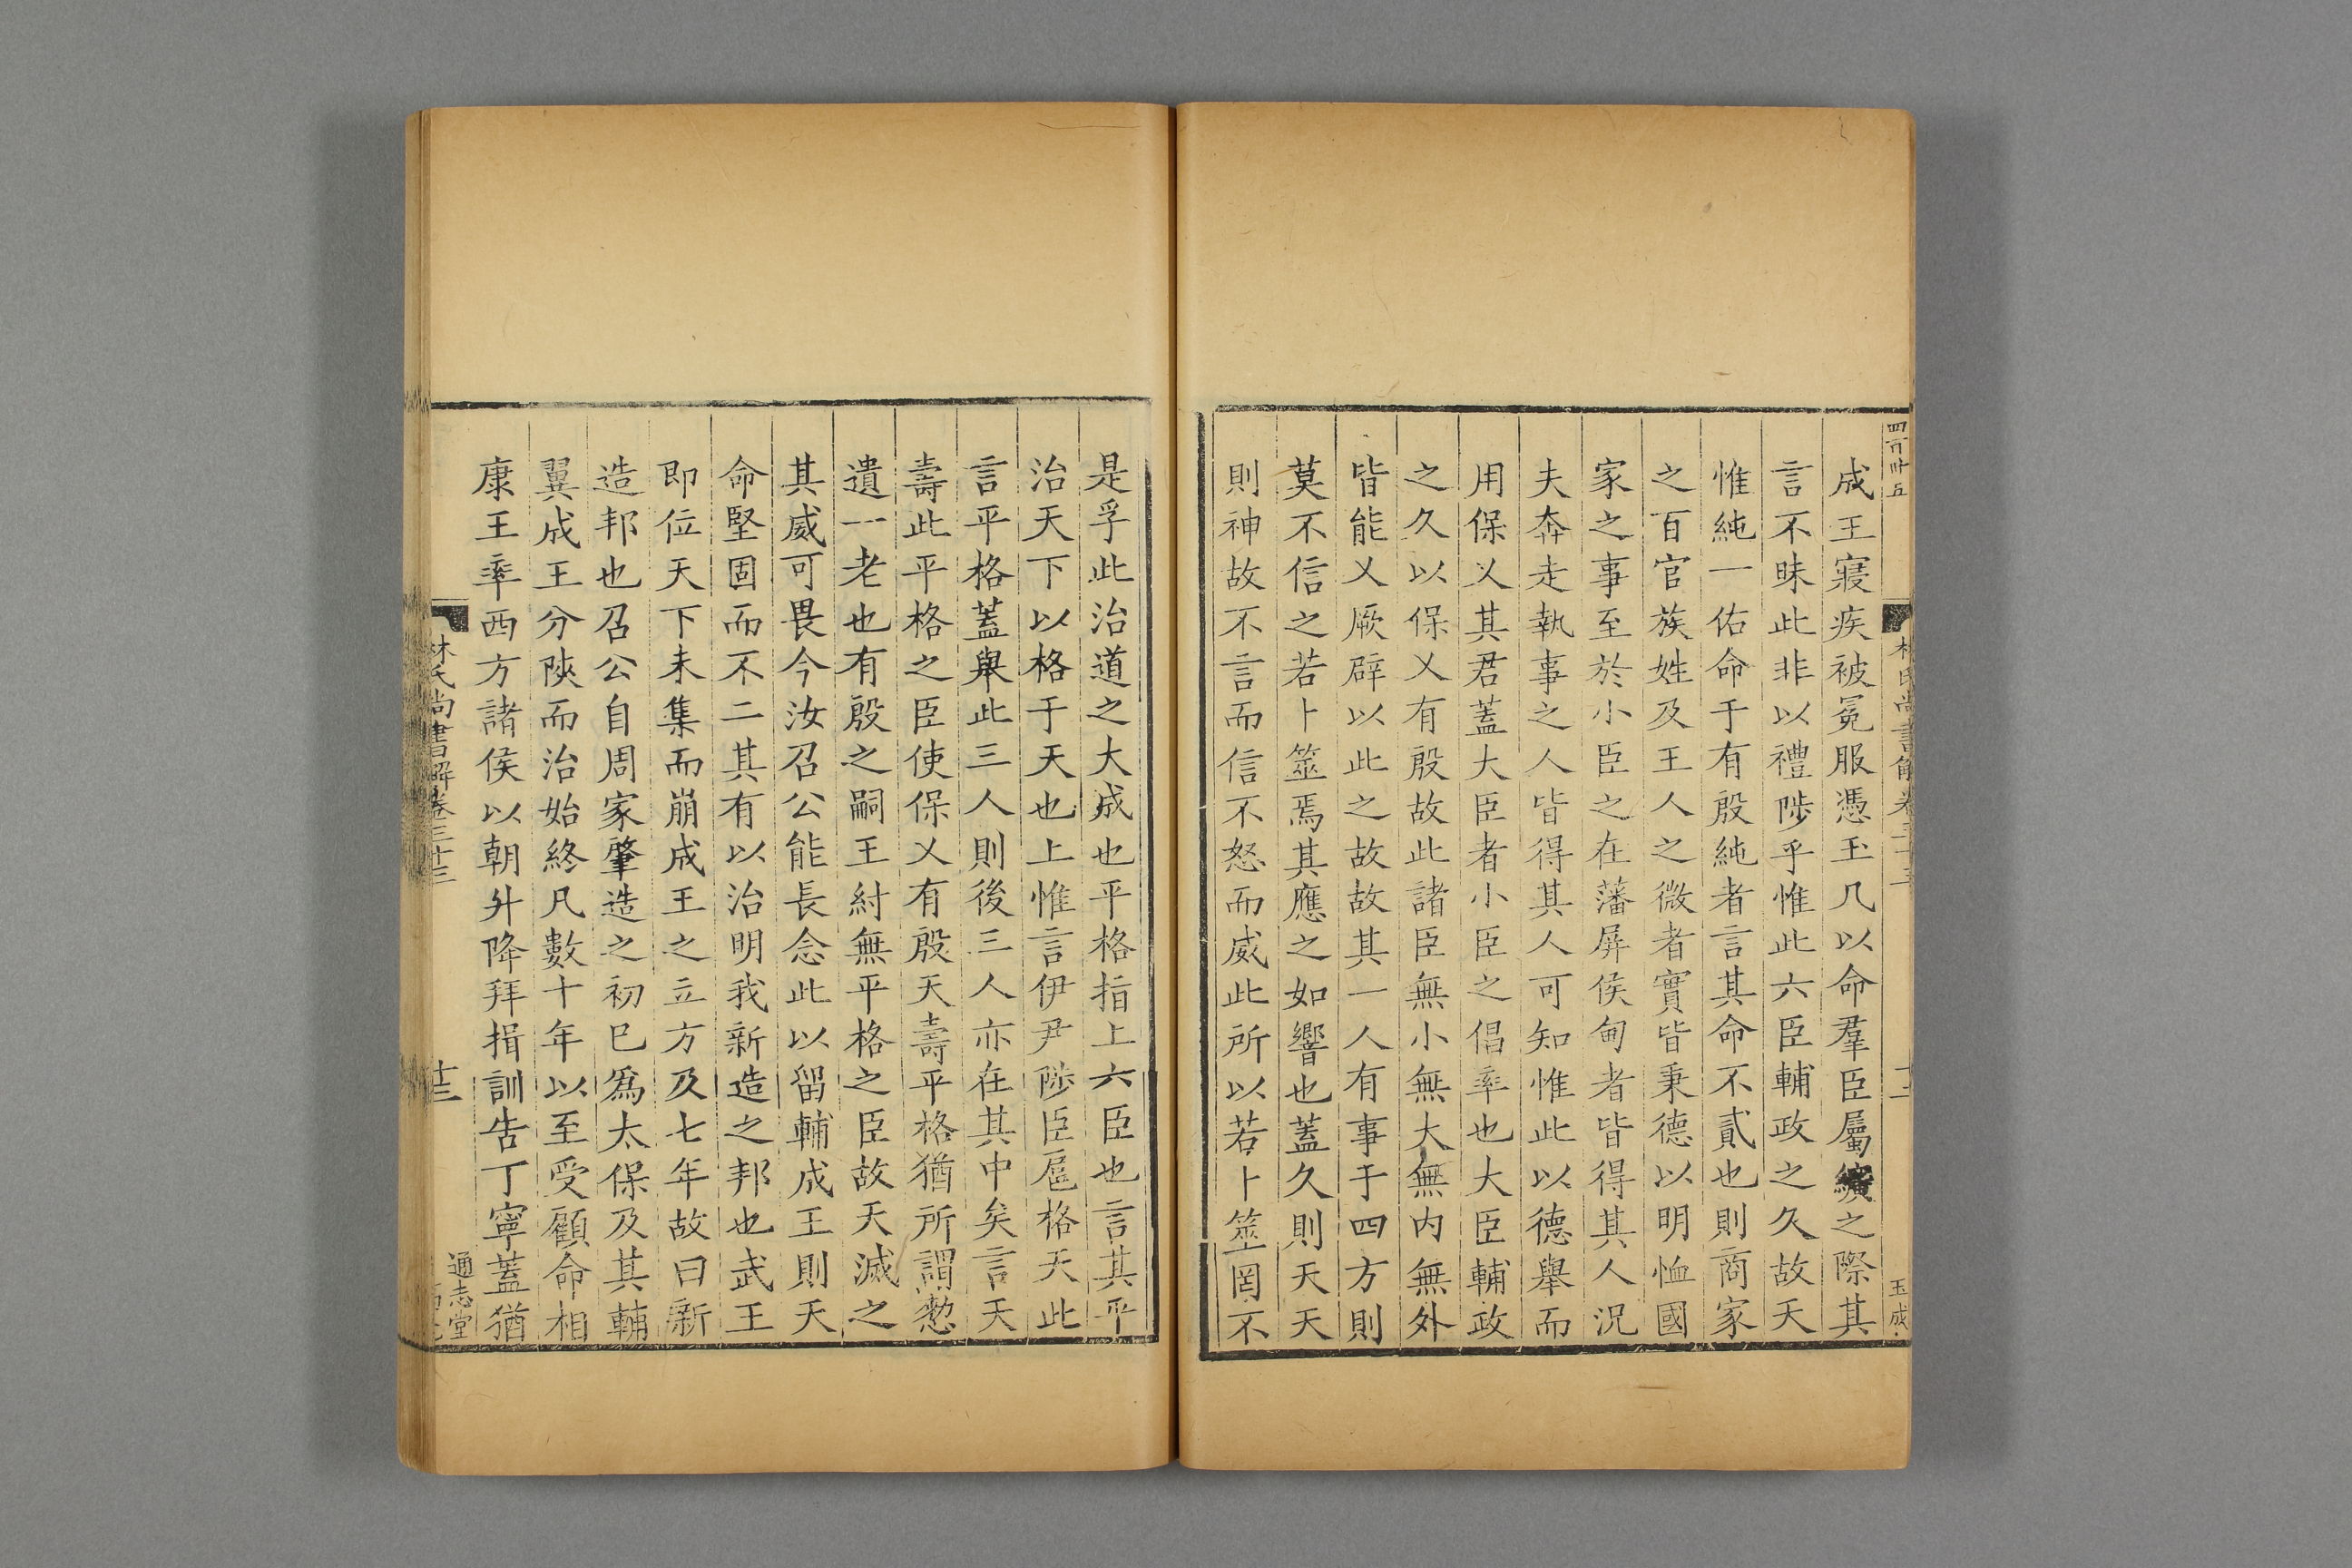 四百卅五
林氏尚書解卷三十三
十二
玉成
成王寢疾被冕服憑玉几以命羣臣屬纊之際其
言不昧此非以禮陟乎惟此六臣輔政之久故天
惟純一佑命于有殷純者言其命不貳也則商家
之百官族姓及王人之微者實皆秉德以明恤國
家之事至於小臣之在藩屏侯甸者皆得其人況
夫奔走執事之人皆得其人可知惟此以德舉而
用保乂其君蓋大臣者小臣之倡率也大臣輔政
之久以保乂有殷故此諸臣無小無大無内無外
皆能乂厥辟以此之故故其一人有事于四方則
莫不信之若卜筮焉其應之如響也蓋久則天天
則神故不言而信不怒而威此所以若卜筮罔不
是孚此治道之大成也平格指上六臣也言其平
治天下以格于天也上惟言伊尹陟臣扈格天此
言平格蓋舉此三人則後三人亦在其中矣言天
壽此平格之臣使保乂有殷天壽平格猶所謂憖
遺一老也有殷之嗣王紂無平格之臣故天滅之
其威可畏今汝召公能長念此以留輔成王則天
命堅固而不二其有以治明我新造之邦也武王
即位天下未集而崩成王之立方及七年故曰新
造邦也召公自周家肇造之初已爲太保及其輔
翼成王分陝而治始終凡數十年以至受顧命相
康王率西方諸侯以朝升降拜揖訓告丁寧蓋猶
林氏尚書解卷三十三
十三
通志堂